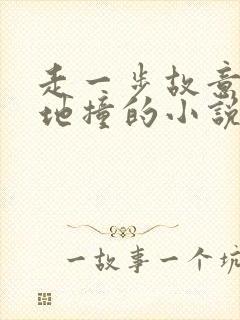 走一步故意
地撞的小說
一故事一个坑